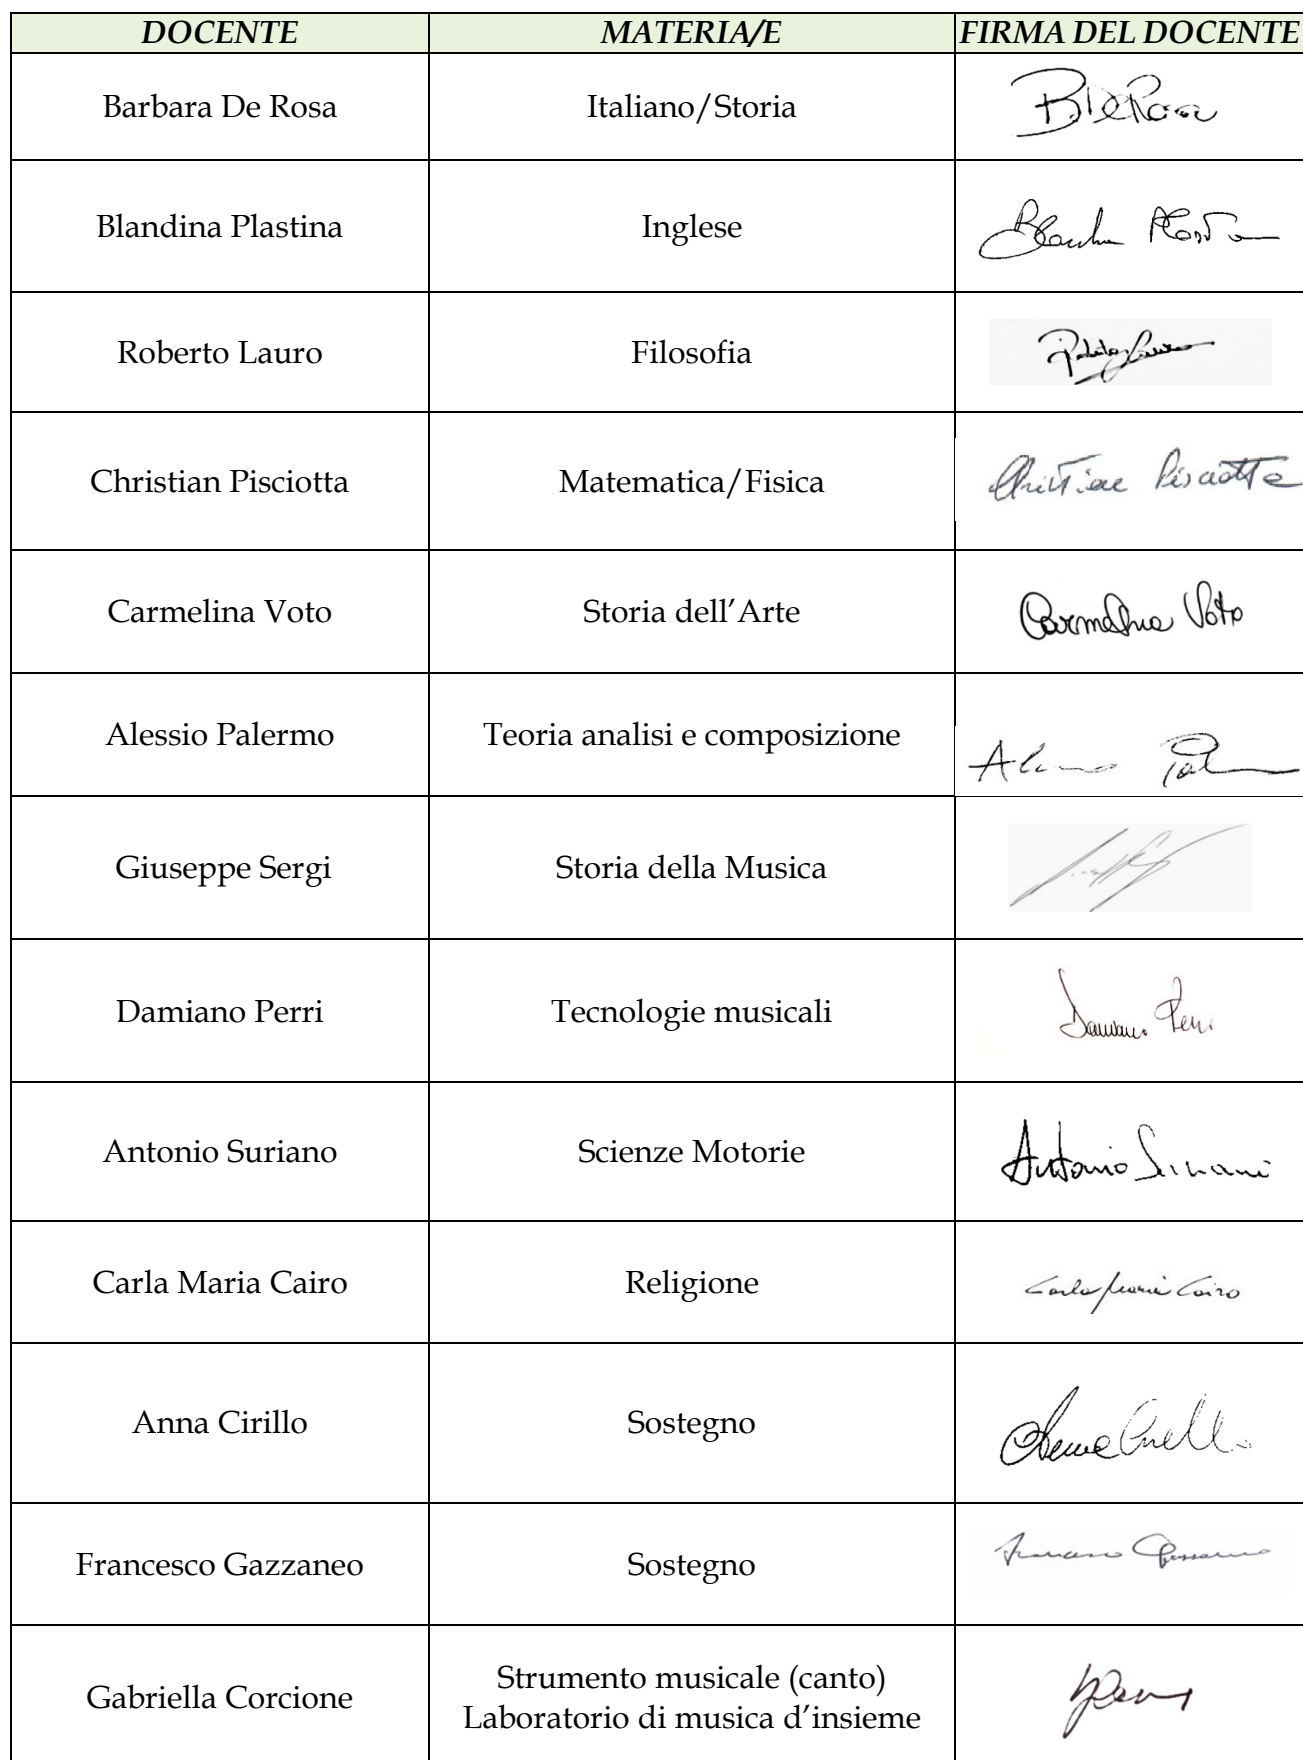 DOCENTE MATERIA/E FIRMA DEL DOCENTE
Barbara De Rosa Italiano/Storia B De Rosa
Blandina Plastina Inglese
Roberto Lauro Filosofia
Christian Pisciotta Matematica/Fisica Christian Pisciotta
Carmelina Voto Storia dell'Arte Carmelina Voto
Alessio Palermo Teoria analisi e composizione
Giuseppe Sergi Storia della Musica
Damiano Perri Tecnologie musicali Damiano Perri
Antonio Suriano Scienze Motorie Antonio
Carla Maria Cairo Religione Carla Maria Cairo
Anna Cirillo Sostegno
Francesco Gazzaneo Sostegno
Gabriella Corcione Strumento musicale (canto)
Laboratorio di musica d'insieme